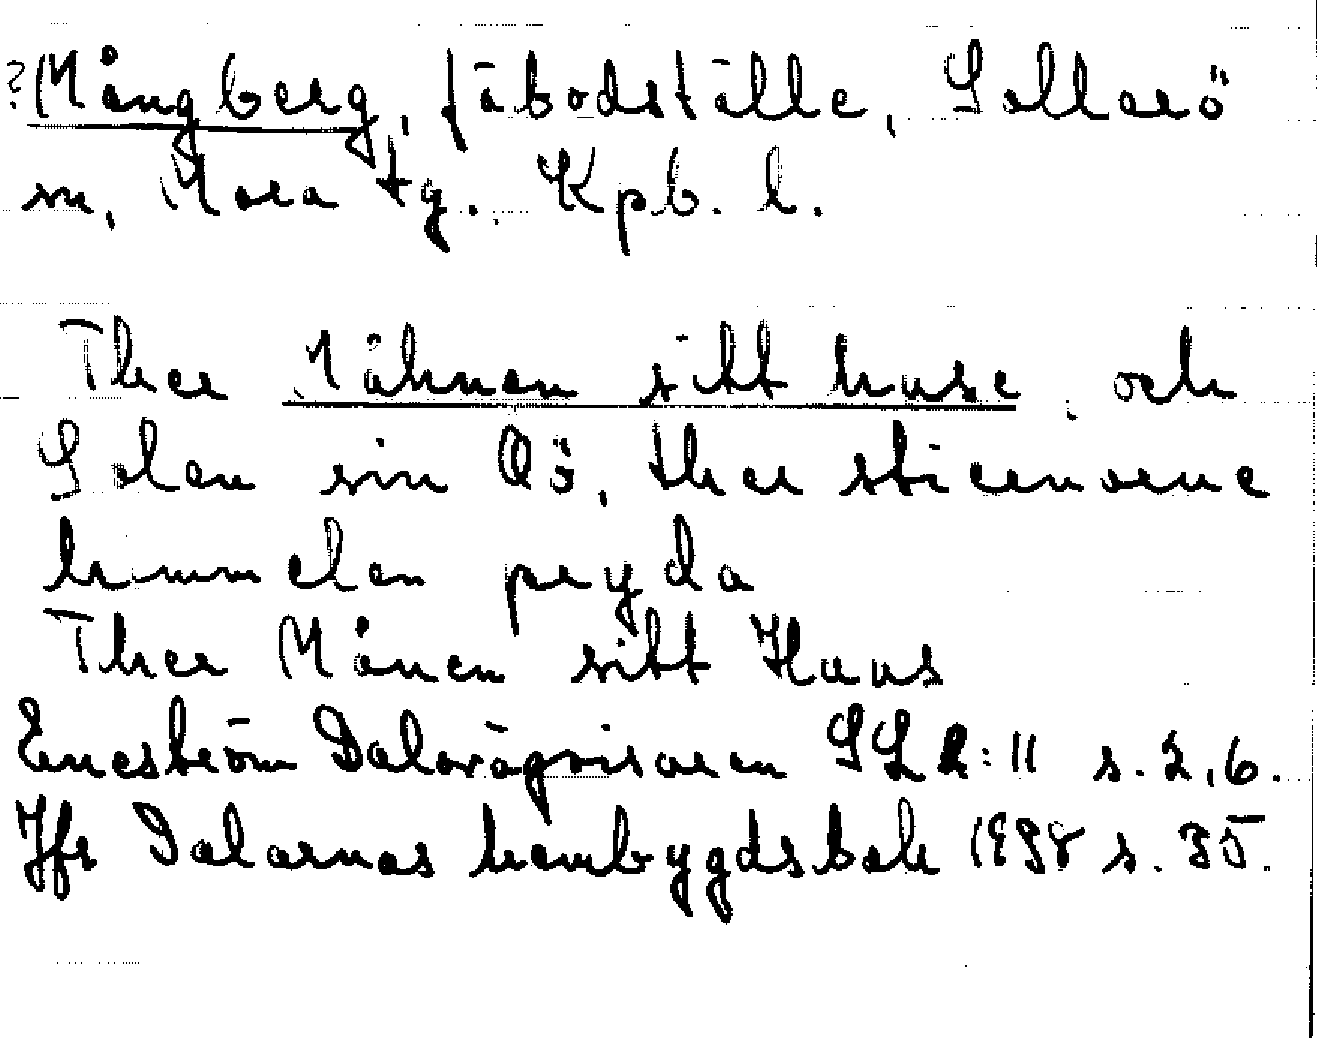 ?Mångberg, fäbodställe, Sollerö
sn, Mora tg. Kpb. l.
Ther Måhnen sitt huse, och
Solen sin Öö, ther stiernorne
himmelen pryda
Ther Månen sitt Huus
Eneström Dalavägvisaren SL 2:11 s. 2, 6.
Jfr Dalarnas hembygdsbok s. 35.